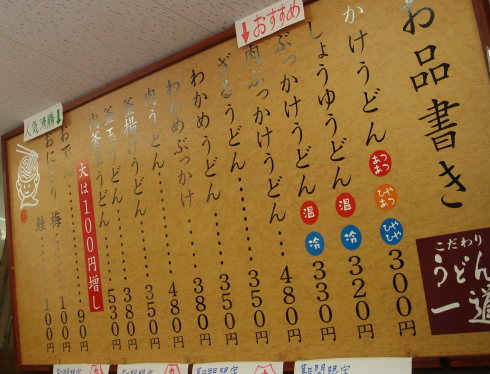 お品書き
こだわり
うどん
一道
かけうどん あつあつ ひやあつ ひやひや 300円
しょうゆうどん 温 冷 320円
↓おすすめ
ぶっかけうどん 温 冷 330円
肉ぶっかけうどん 480円
ざるうどん 350円
わかめうどん 350円
わかめぶっかけ 380円
肉うどん 480円
釜揚げうどん 350円
釜玉うどん 380円
肉釜玉うどん 530円
大は100円増し
人気沸騰↓
おでん 90円
おにぎり 梅 100円
鮭 100円
期間限定
期間限定
期間限定
期間限定